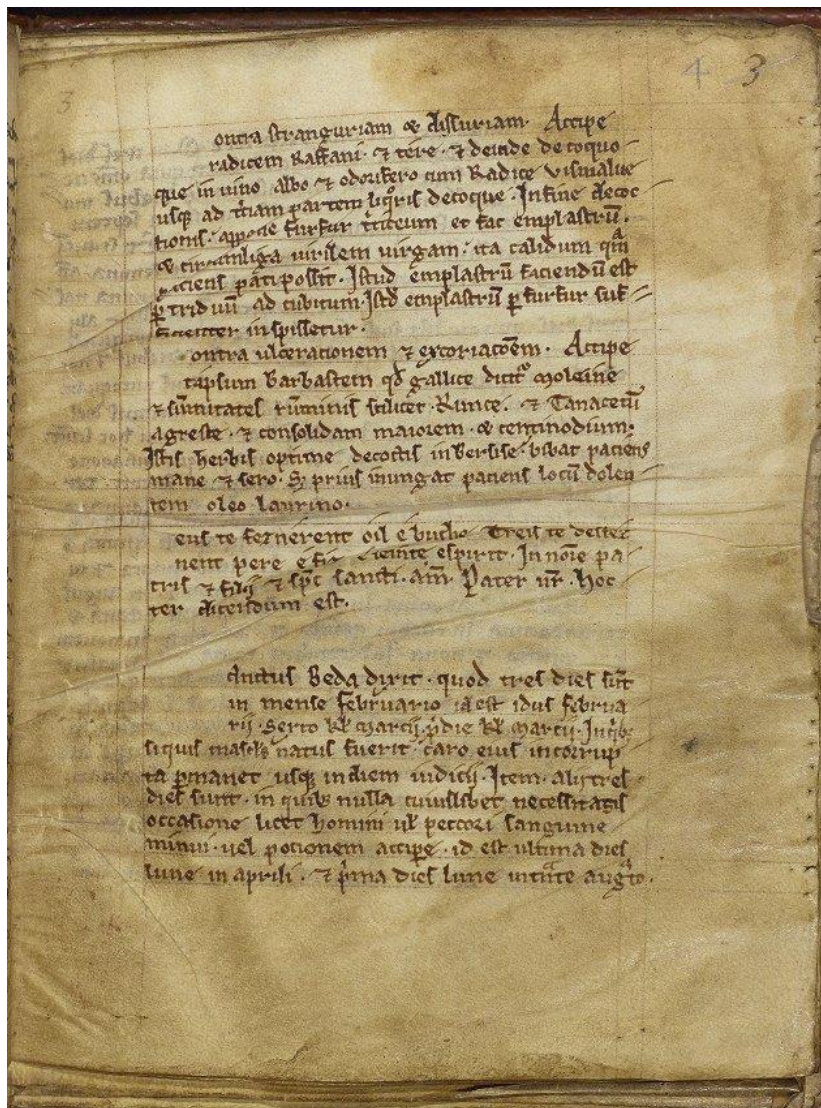 4 3
3
ontra stranguriam & dissuriam. Accipe
radicem Raffani. ⁊ tere. ⁊ deinde decoquo
que in vino albo ⁊ odorifero cum Radice vismalue
usq; ad t̾ciam partem liq̾ris decoque. In fine decoc
tionis. appone furfur t̾ticeum et fac emplastrū.
& circumliga virilem virgam. ita calidum qm̄
paciens pati possit. Istud emplastrū faciendū est
ꝑ triduū ad cubitum. Istđ emplastrū ꝑ furfur suf
ficienter inspissetur.
ontra ulcerationem ⁊ excoriacōem. Accipe
tapsum barbastem qđ gallice dicit᷑ moleine
⁊ sūmitates rūminis scilicet Runce. ⁊ Tanacetū
agreste. ⁊ consolidam maiorem. & centinodium.
Istis herbis optime decoctis in cervise. bibat paciens
mane ⁊ sero. Sꝫ prius inungat paciens locū dolen
tem oleo laurino.
eus te
nent pere espirit. In noīe pa
tris ⁊ filij ⁊ sp̄c sancti. am̄. Pater nr̄. hoc
ter dicendum est.
anctus Beda dixit. quod tres dies sūt
in mense februario id est idus februa
rij. Sexto kł marcij. p̾die kł marcij. In q̾bꝫ
si quis masc̾ls natus fuerit. caro eius incorrup
ta ꝑmanet usqꝫ in diem iudicij. Item. alij tres
dies sunt. in quibꝫ nulla cuiuslibet necessitatis
occasione licet homini ul̄ peccori sanguine
minui. uel pocionem accipe. id est ultima dies
lune in aprili. ⁊ p̾ma dies lune intn̄te augto.